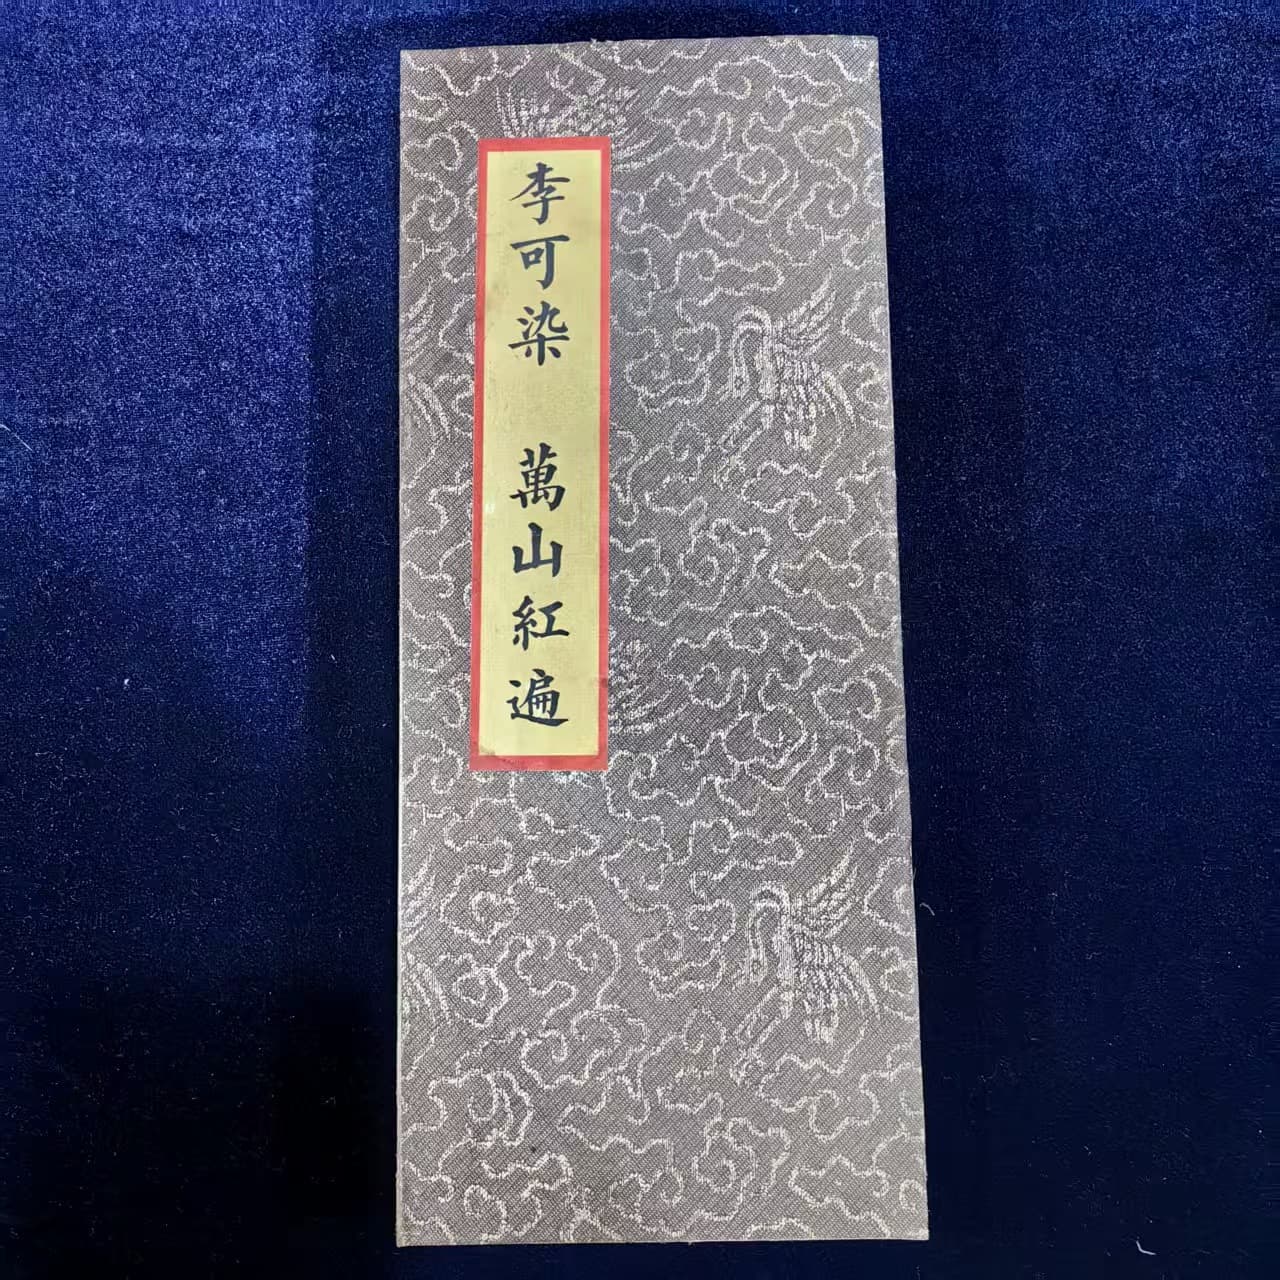 李可染 萬山紅遍